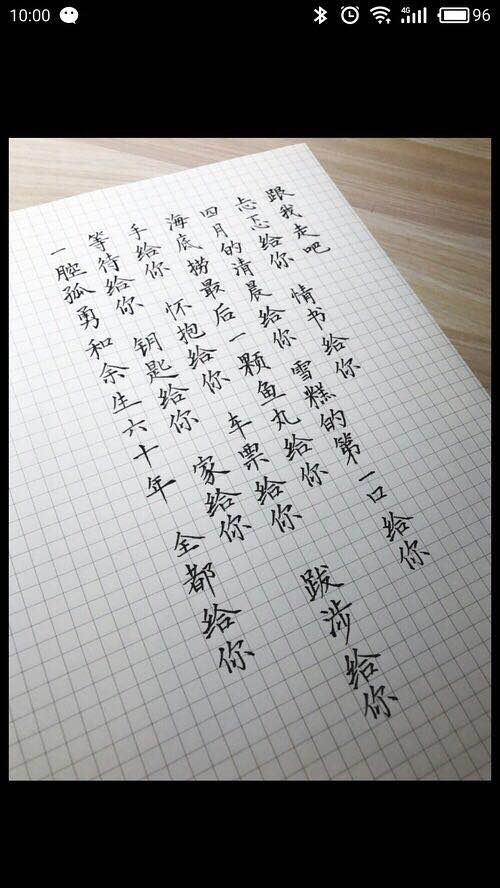 10:00
4G
96
跟我走吧
忐忑给你 情书给你
四月的清晨给你 雪糕的第一口给你
海底捞最后一颗鱼丸给你
手给你 怀抱给你 车票给你 跋涉给你
等待给你 钥匙给你 家给你
一腔孤勇和余生六十年 全都给你